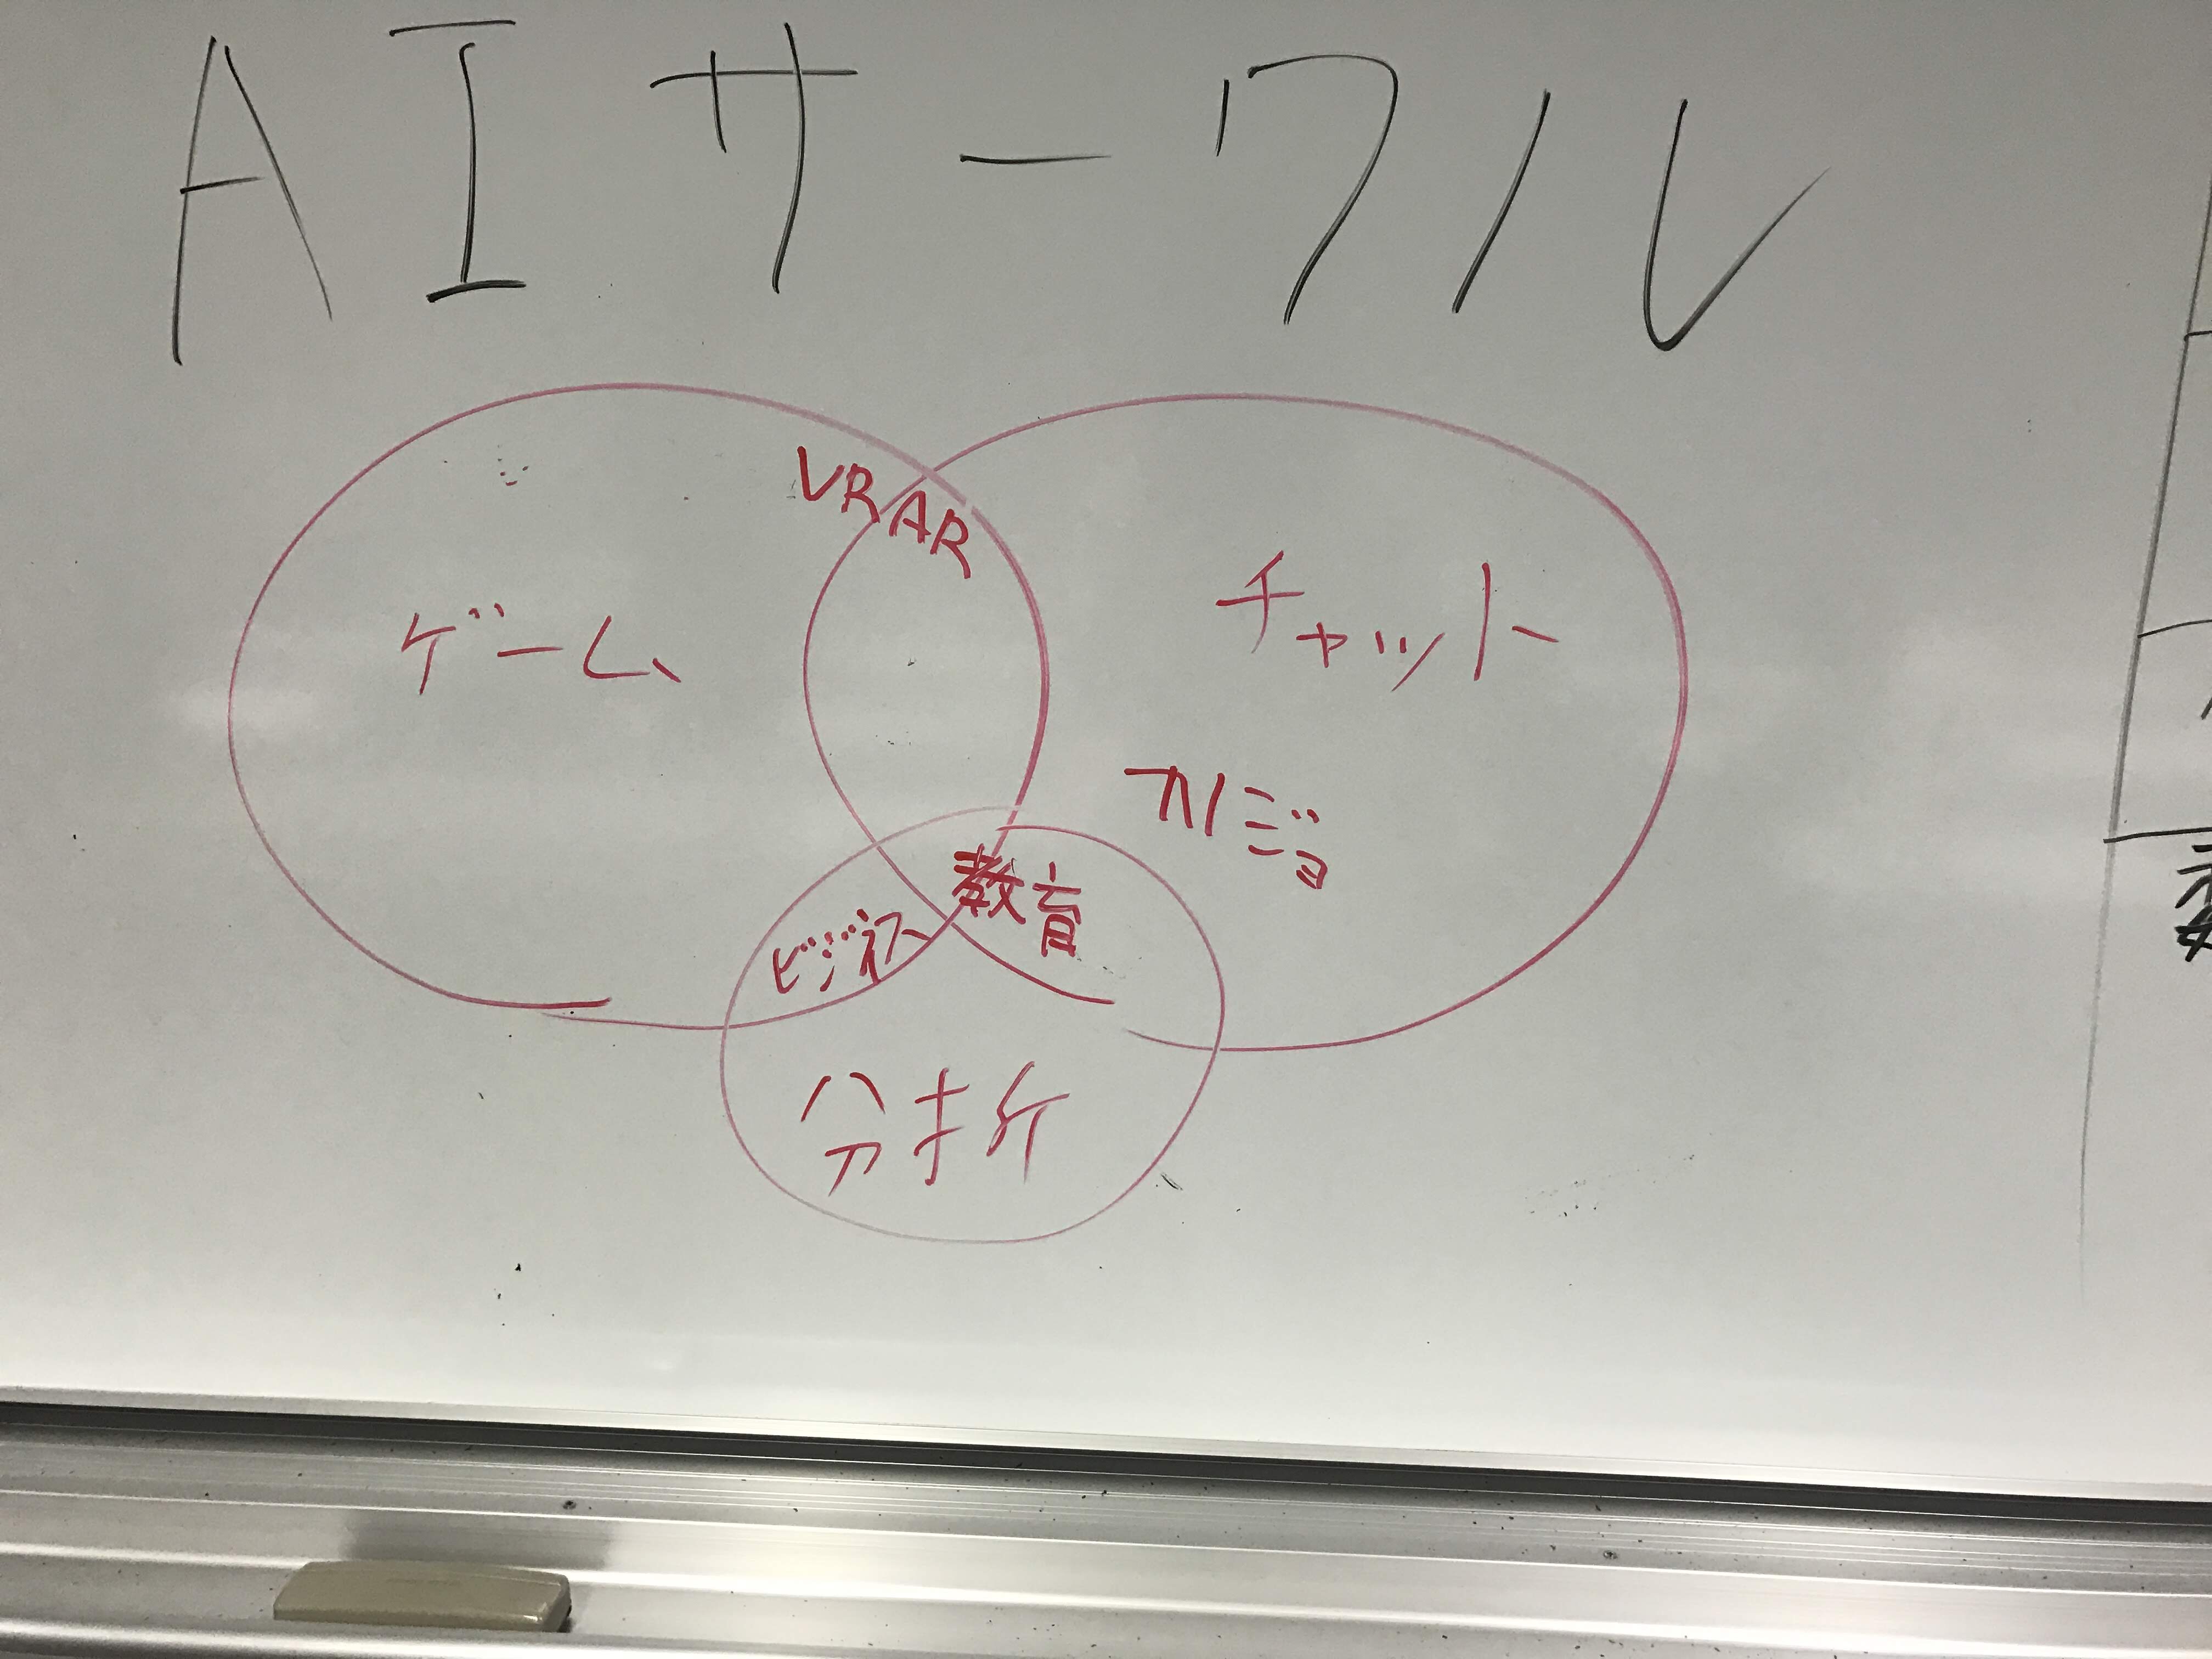 AIサークル
VR AR
ゲーム
チャット
カノジョ
教育
ビジネス
分析